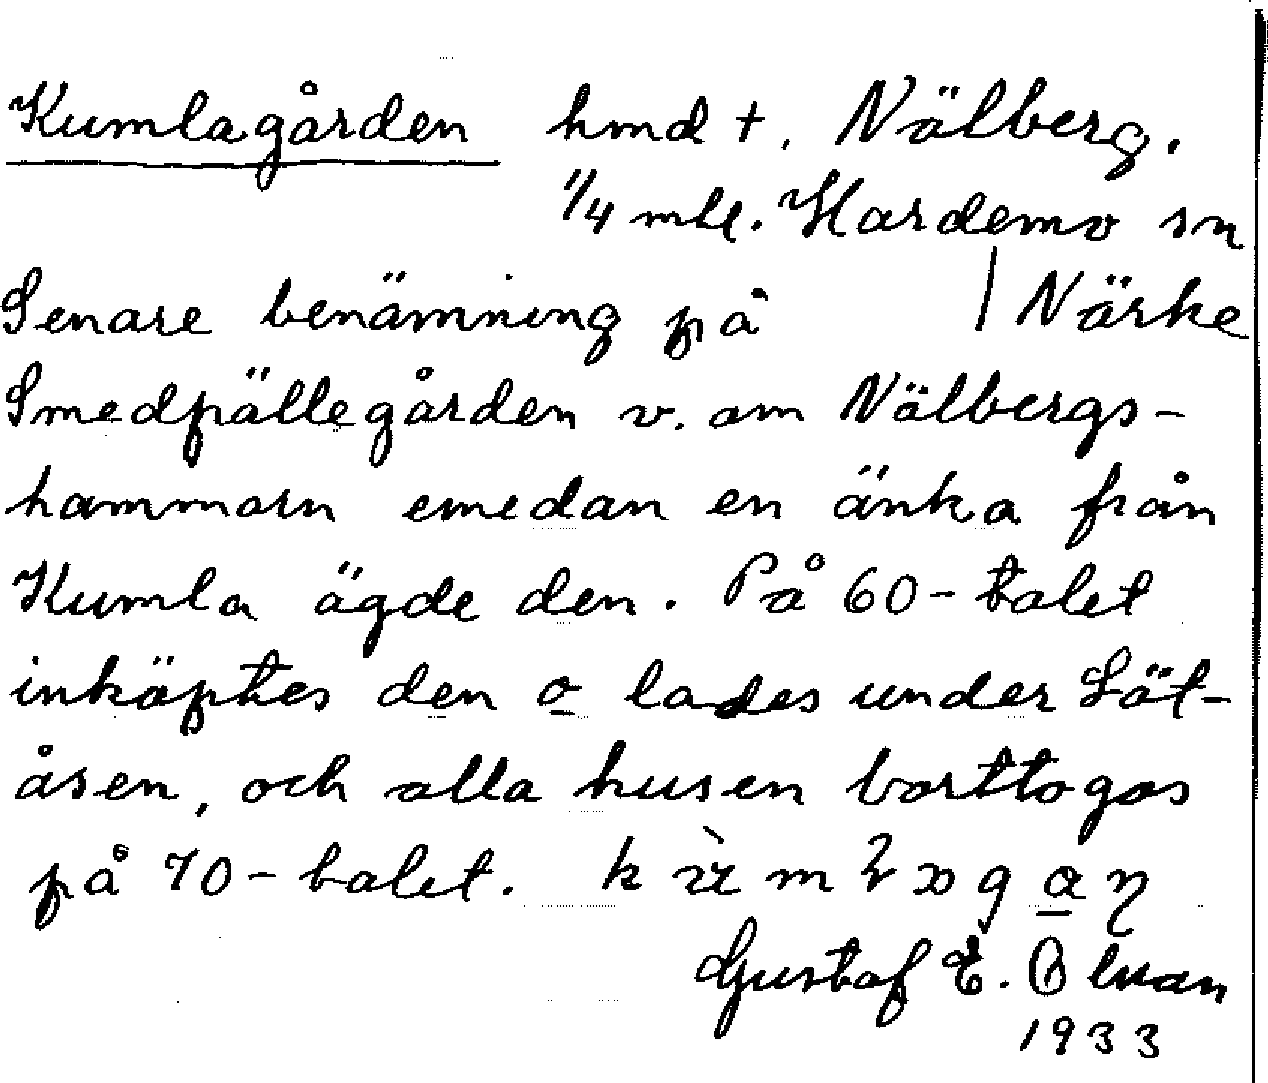 Kumlagården hmd +. Nälberg.
1/4 mtl. Hardemo sn
Senare benämning på | Närke
Smedpällegården v. om Nälbergs-
hammarn emedan en änka från
Kumla ägde den. På 60-talet
inköptes den o lades under Löt-
åsen, och alla husen borttogos
på 70-talet.
Gustaf E.
1933